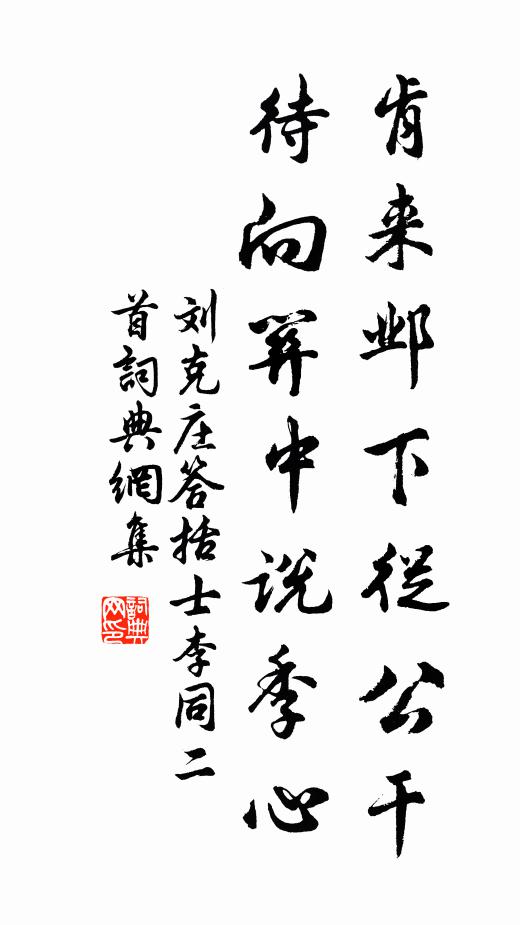 肯来邺下從公干
待向關中說季心
刘克庄答括士李同二
首詞典網集
詞典
网印